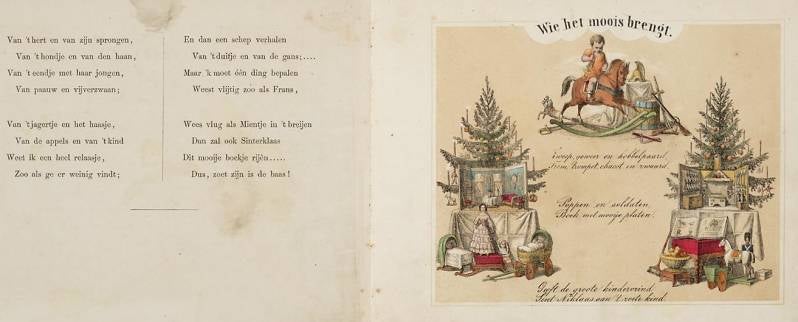 Van 't hert en van zijn sprongen,
Van 't hondje en van den haan,
Van 't eendje met haar jongen,
Van paauw en vijverzwaan;
Van 't jagertje en het haasje,
Van de appels en van 't kind
Weet ik een heel relaasje,
Zoo als ge er weinig vindt;
En dan een schep verhalen
Van 't duitje en van de gans;....
Maar 'k moet één ding bepalen
Weest vlijtig zoo als Frans,
Wees vlug als Mientje in 't breijen
Dan zal ook Sinterklaas
Dit mooije boekje rijën.....
Dus, zoet zijn is de baas!
Wie het moois brengt.
Zweep, geweer en hobbelpaard,
Trom, trompet, chacot en zwaard.
Poppen en soldaten,
Boek met mooije platen.
Geeft de groote kindervrind,
Sent Niklaas, aan 't zoete kind.